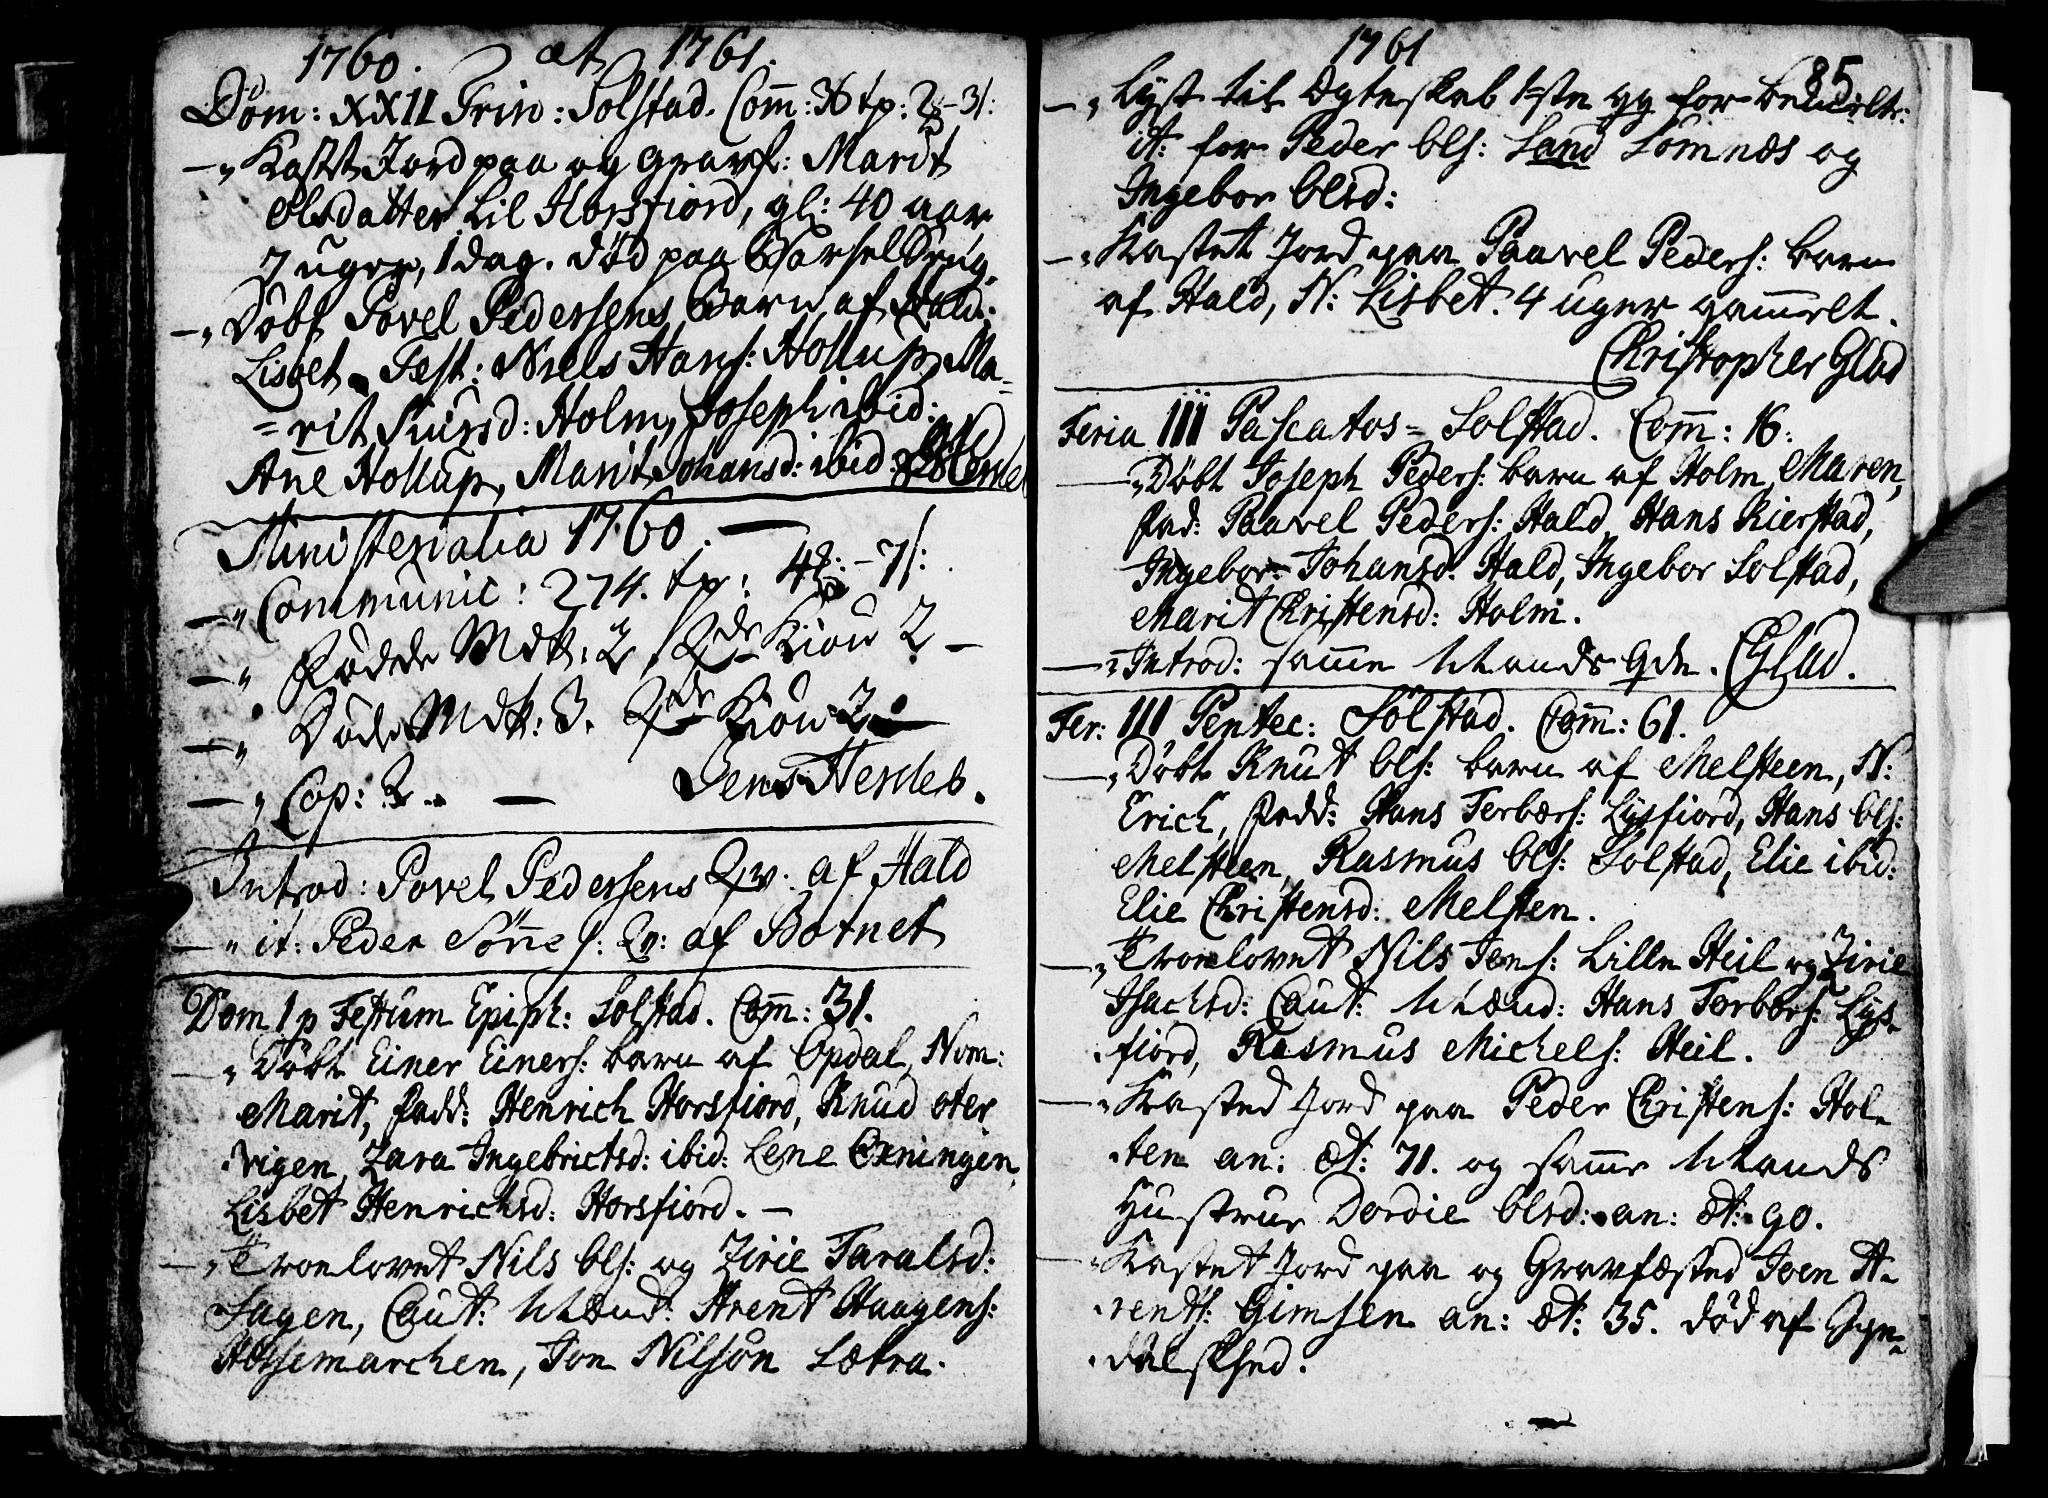 1760. et 1761.
Dom: XXII Trin: Solstad. Comm: 36 tp: 2 - 31:
Kast Jord paa og Gravf: Marit
Olsdatter Lil Horsfiord, gl: 40 aar
7 uger, 1 dag. død paa Barselseng.
Døbt Povel Pedersens Barn af Hald:
Lisbet. Test: Niels Hans: Hollup, Ma=
=rit Siursd: Holm, Joseph ibid:
Ane Hollup, Marit Johansd: ibid:
Ministerialia 1760.
Communic: 274. tp: 4 - 71:
Fødde Mdk: 2, Qvinde Kiøn 2 -
Døde Mdk: 3. Qvinde Kiøn: 2.
Cop: 3. Jens Herdeb.
Introd: Povel Pedersens Qv: af Hald
it: Peder Sønnes: Qv: af Botnet
Dom 1 p Festum Epiph: Solstad. Comm: 31.
Døbt Einer Einers: barn af Opdal, Nom:
Marit, fadd: Henrich Horsfiord, Knud Oter
vigen, Zara Ingebrictsd: ibid: Lene Oxningen,
Lisbet Henrichsd: Horsfiord. -
Troelovet Nils Ols: og Zirie Taralsd:
Sagen, Caut: Mænd: Arent Haagens:
Horsemarchen, Jon Nilsøn Lætra.
1761
85
Lyst til Ægteskab 1ste gg for
it: for Peder Ols: Sand Sømnæs og
Ingebor Olsd:
Kastet Jord paa Paavel Peders: barn
af Hald, N: Lisbet. 4 uger gammelt.
Christopher Glad
Feria III Pascatos = Solstad. Comm: 16:
Døbt Joseph Peders: barn af Holm, Maren,
fad: Paavel Peders: Hald, Hans Kierstad,
Ingebor Johansd: Hald, Ingebor Solstad,
Marit Christensd: Holm.
Introd: samme Mands Qde. CGlad.
Fer: III Pentec: Solstad. Comm: 61.
Døbt Knut Ols: barn af Melsteen, N:
Erich, fadd: Hans Torbærs: Lysfiord, Hans Ols:
Melsteen, Rasmus Ols: Solstad, Elie ibid:
Elie Christensd: Melsten.
Troelovet Nils Jens: Lille Heil og Zirie
Isachsd: Caut: Mænd: Hans Torbærs: Lys-
fiord, Rasmus Michels: Heil.
Kasted Jord paa Peder Christens: Hol-
ten an: æt: 71. og samme Mands
Hustrue Dordie Olsd: an: æt: 90.
Kastet Jord paa og Gravfæsted Joen A-
rents: Gimsen an: æt: 35. død af